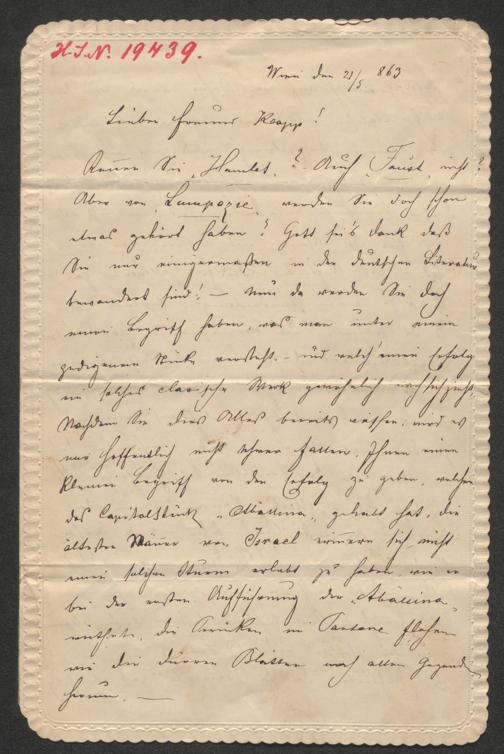 H.I.N. 19439.
Wien den 21/5 863
Lieber Freund Kropp!
Kennen Sie „Hamlet"? Auch „Faust" nicht?
Aber von „Lumpazie" werden Sie doch schon
etwas gehört haben? Gott sei's dank daß
Sie nur einigermaßen in der deutschen Literatur
bewandert sind! — Nun da werden Sie doch
einen Begriff haben, was man unter einem
gediegenen Stücke versteht. — und welch' einen Erfolg
ein solches classische Werk gewöhnlich nach sich zieht.
Nachdem Sie dies Alles bereits wissen, wird es
mir hoffentlich nicht schwer fallen, Ihnen einen
kleinen Begriff von dem Erfolg zu geben, welchen
das Capitalstück gehabt hat, die
ältesten Männer von Israel erinnern sich nicht
einen solchen Sturm erlebt zu haben wie er
bei der ersten Aufführung der
die in flohen
wie die dürren Blätter nach allen Gegenden
herum. —